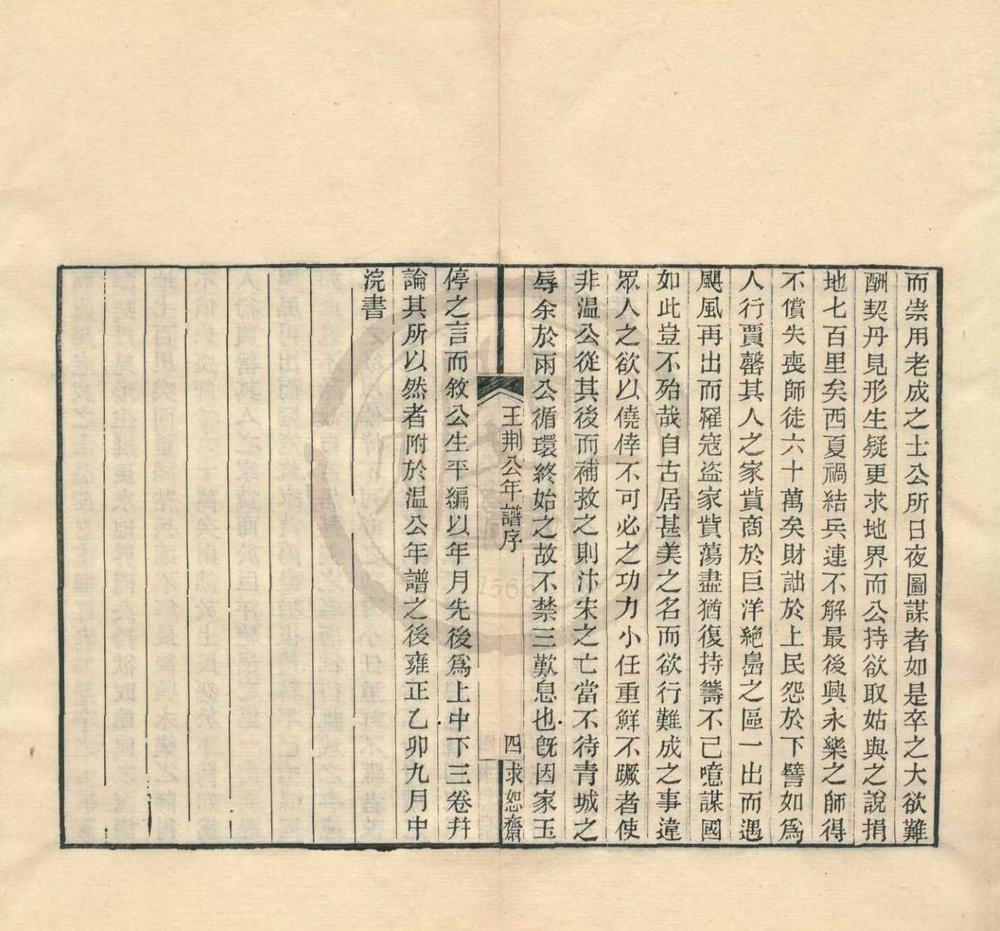 而崇用老成之士公所日夜圖謀者如是卒之大欲難
酬契丹見形生疑更求地界而公持欲取姑與之說捐
地七百里矣西夏禍結兵連不解最後興永樂之師得
不償失喪師徒六十萬矣財詘於上民怨於下譬如爲
人行賈罄其人之家貲商於巨洋絶島之區一出而遇
颶風再出而罹寇盜家貲蕩盡猶復持籌不已噫謀國
如此豈不殆哉自古居甚美之名而欲行難成之事違
眾人之欲以僥倖不可必之功力小任重鮮不蹶者使
非温公從其後而補救之則汴宋之亡當不待青城之
辱余於兩公循環終始之故不禁三歎息也旣因家玉
王荆公年譜序
四
求恕齋
停之言而敘公生平編以年月先後爲上中下三卷幷
論其所以然者附於温公年譜之後雍正乙卯九月中
浣書
1568